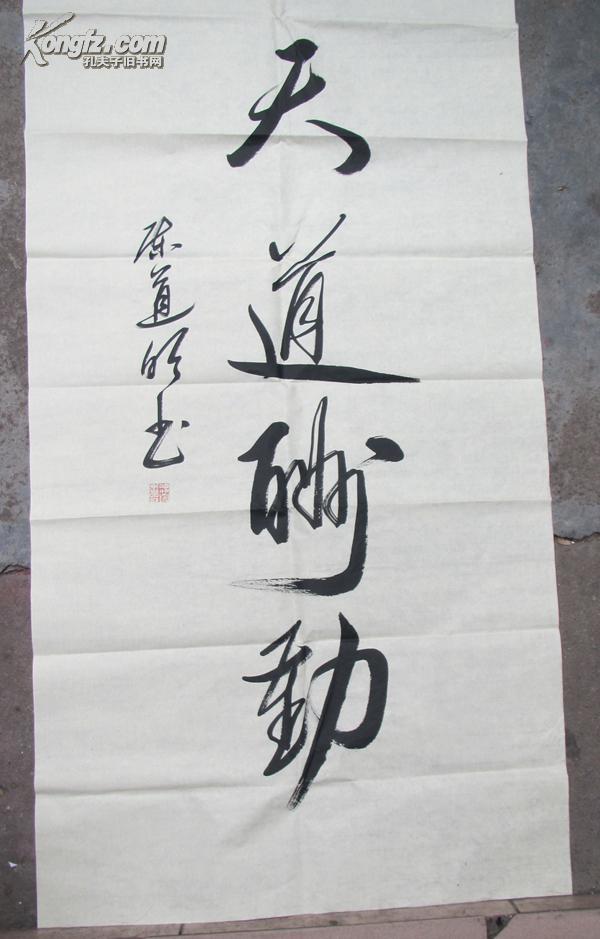 Kongfz.com
孔夫子旧书网
天道酬勤
陈道明书